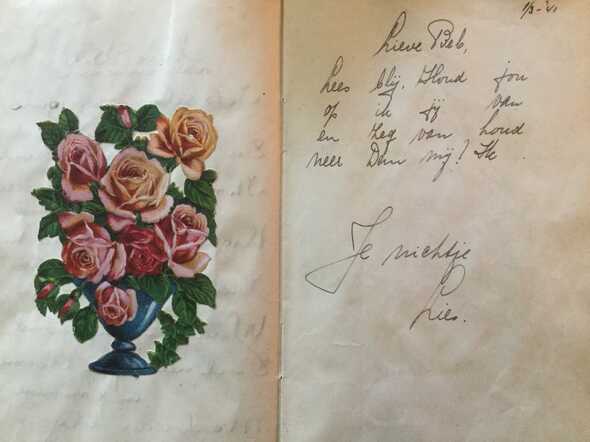 Lieve Beb,
Lees blij. Houd jou
op ik jij van
en zeg van houd
neer Dan mij? Ik
Je nichtje
Lies.